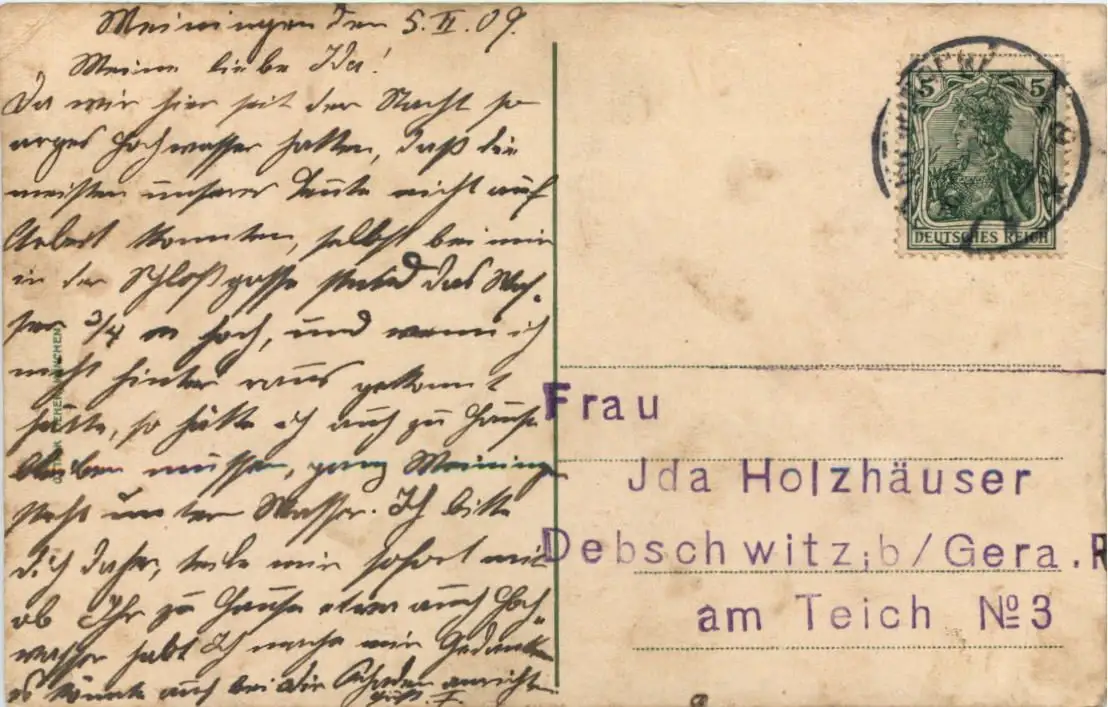 Meiningen den 5. II. 09.
Meine liebe Ida!
Da wir hier seit der Nacht so
arges Hochwasser hatten, daß die
meisten unserer Leute nicht auf
Arbeit konnten, selbst bei mir
in der Schloßgasse stand das Was-
ser 3/4 m hoch, und wenn ich
nicht hinten raus gekonnt
hätte, so hätte ich auch zu Hause
bleiben müssen, ganz Meiningen
steht unter Wasser. Ich bitte
Dich daher, teile mir sofort mit
ob Ihr zu Hause etwa auch Hoch-
wasser habt Ich mache mir Gedanken
es könnte auch bei Dir Schaden anrichten
MÜNCHEN
5 5
DEUTSCHES REICH
Frau
Jda Holzhäuser
Debschwitz;b/Gera.R
am Teich № 3